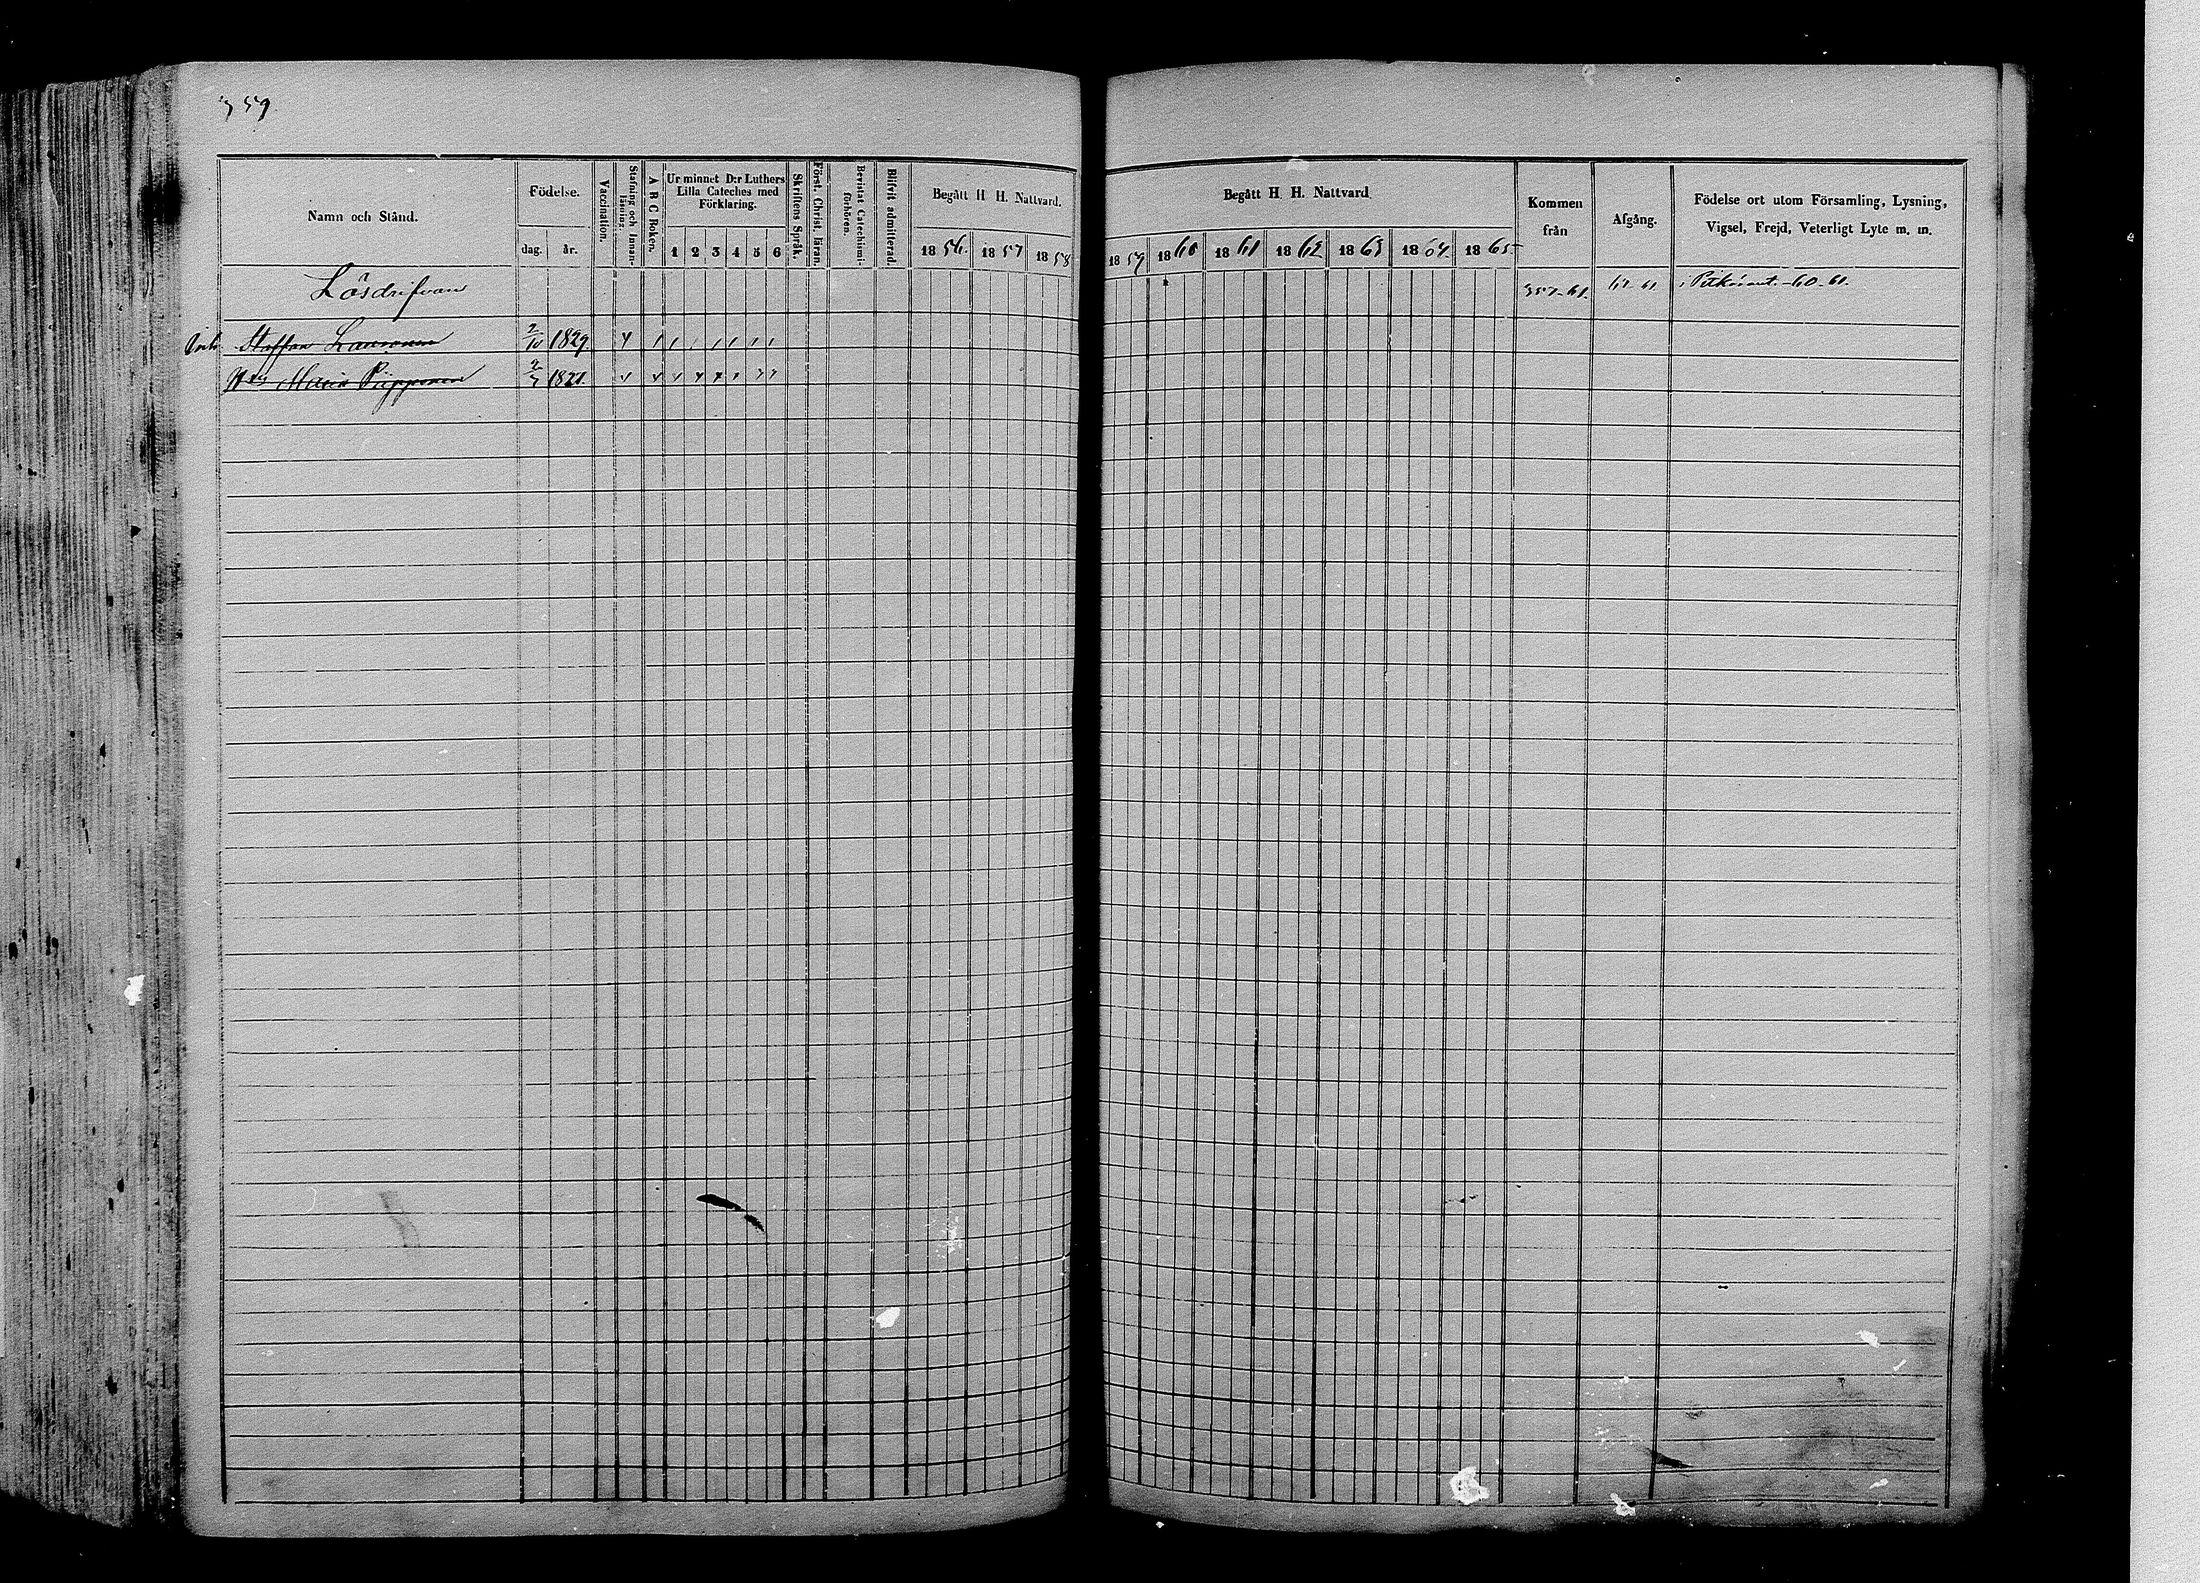 359
Namn och Stånd.
Födelse.
dag. år.
Vaccination.
Stafning och Innanläsning.
A B C Boken.
Ur minnet D:r Luthers Lilla Cateches med Förklaring.
1 2 3 4 5 6
Skriftens Språk.
Först. Christ. läran.
Bevistat Catechismiförhören.
Blifvit admitterad.
Begått H H. Nattvard.
1856. 1857 1858
Begått H. H. Nattvard
1859 1860 1861 1862 1863 1864 1865
Kommen från
Afgång.
Födelse ort utom Församling, Lysning, Vigsel, Frejd, Veterligt Lyte m. m.
Lösdrifvan
357-61. 61-61 -60-61.
Staffan 2/10 1829
Maria Piipponen 1821